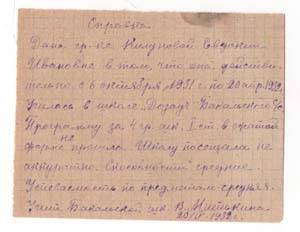 Справка
Дана гр-ке Килуновой Евдокии
Ивановне в том, что она, действи-
тельно с 6 октября 1931 г. по 20 апр. 1932 г.
училась в школе
Программу за 4 гр. шк. I ст. в сжатой
форме прошла Школу посещала не
аккуратно. Способности средние.
Успеваемость по предметам средняя.
Учит. Бакальской шк. В.
20/IV-1932 г.